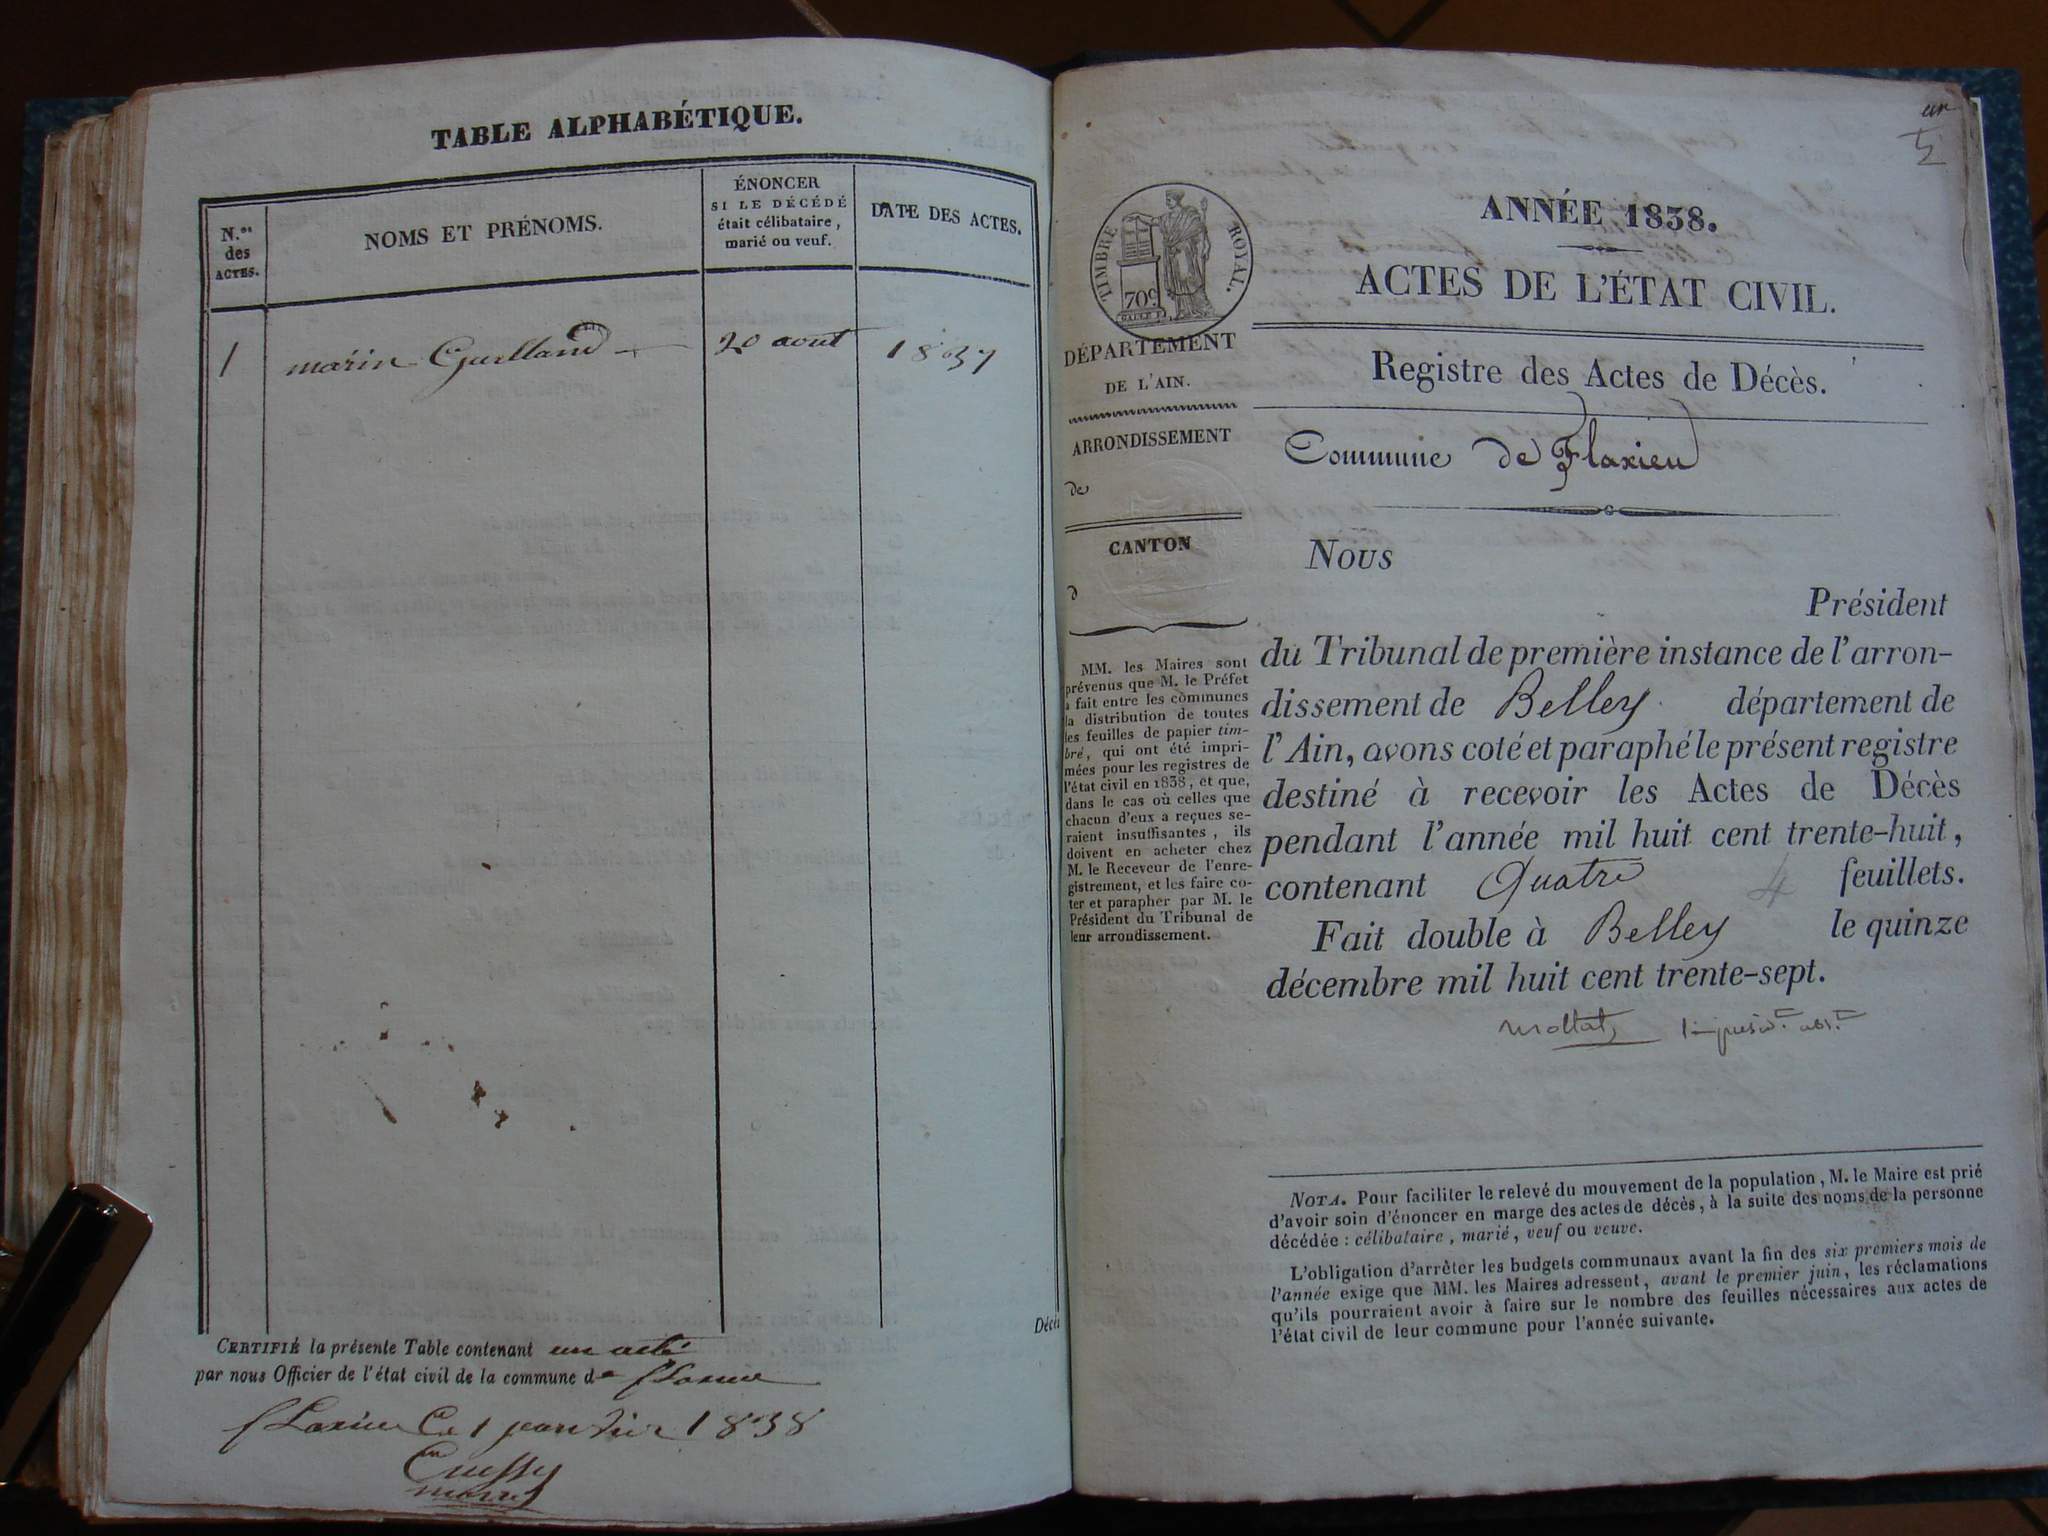 TABLE ALPHABÉTIQUE.
N.os des ACTES.
NOMS ET PRÉNOMS.
ÉNONCER
SI LE DÉCÉDÉ
était célibataire,
marié ou veuf.
DATE DES ACTES.
1 marin Guelland 20 aout 1837
CERTIFIÉ la présente Table contenant un acte
par nous Officier de l'état civil de la commune de flaxieu
flaxieu Ce 1 janvier 1838
Décè
un
ANNÉE 1838.
ACTES DE L'ÉTAT CIVIL.
TIMBRE ROYAL.
70c.
DÉPARTEMENT
DE L'AIN.
ARRONDISSEMENT
de
CANTON
d
MM. les Maires sont
prévenus que M. le Préfet
a fait entre les communes
la distribution de toutes
les feuilles de papier tim-
bré, qui ont été impri-
mées pour les registres de
l'état civil en 1838, et que,
dans le cas où celles que
chacun d'eux a reçues se-
raient insuffisantes, ils
doivent en acheter chez
M. le Receveur de l'enre-
gistrement, et les faire co-
ter et parapher par M. le
Président du Tribunal de
leur arrondissement.
Registre des Actes de Décès.
Commune de Flaxieu
Nous
Président
du Tribunal de première instance de l'arron-
dissement de Belley département de
l'Ain, avons coté et paraphé le présent registre
destiné à recevoir les Actes de Décès
pendant l'année mil huit cent trente-huit,
contenant Quatre 4 feuillets.
Fait double à Belley le quinze
décembre mil huit cent trente-sept.
NOTA. Pour faciliter le relevé du mouvement de la population, M. le Maire est prié
d'avoir soin d'énoncer en marge des actes de décès, à la suite des noms de la personne
décédée : célibataire, marié, veuf ou veuve.
L'obligation d'arrêter les budgets communaux avant la fin des six premiers mois de
l'année exige que MM. les Maires adressent, avant le premier juin, les réclamations
qu'ils pourraient avoir à faire sur le nombre des feuilles nécessaires aux actes de
l'état civil de leur commune pour l'année suivante.